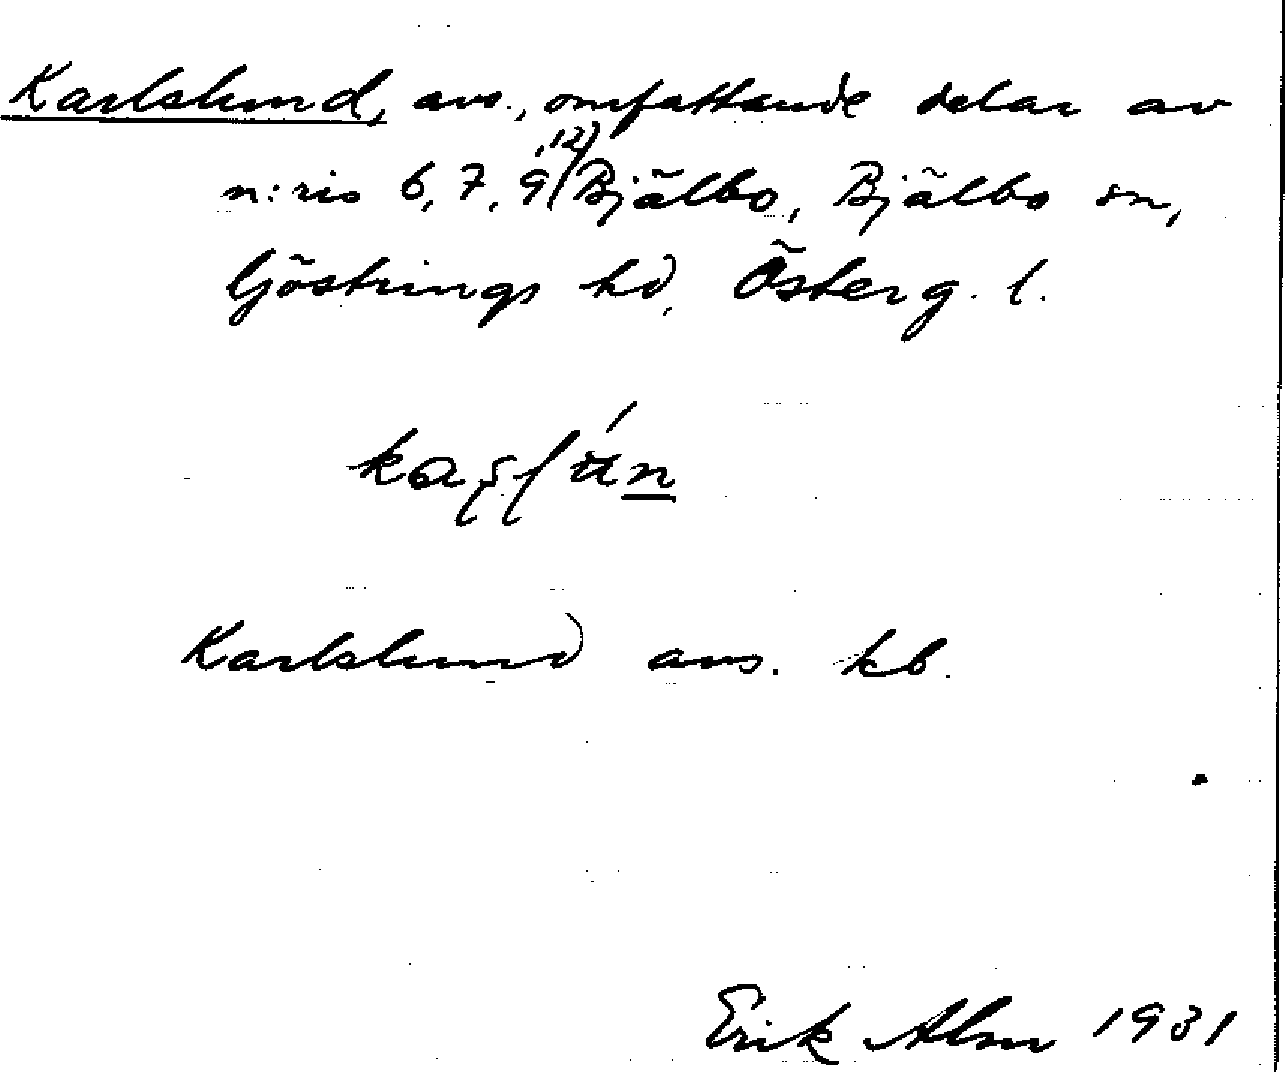 Karlslund, avs., omfattande delar av
n:ris 6, 7, 9, 12) Bjälbo, Bjälbo sn,
Göstrings hd, Österg. l.
Karlslund avs. kb.
Erik Alm 1931